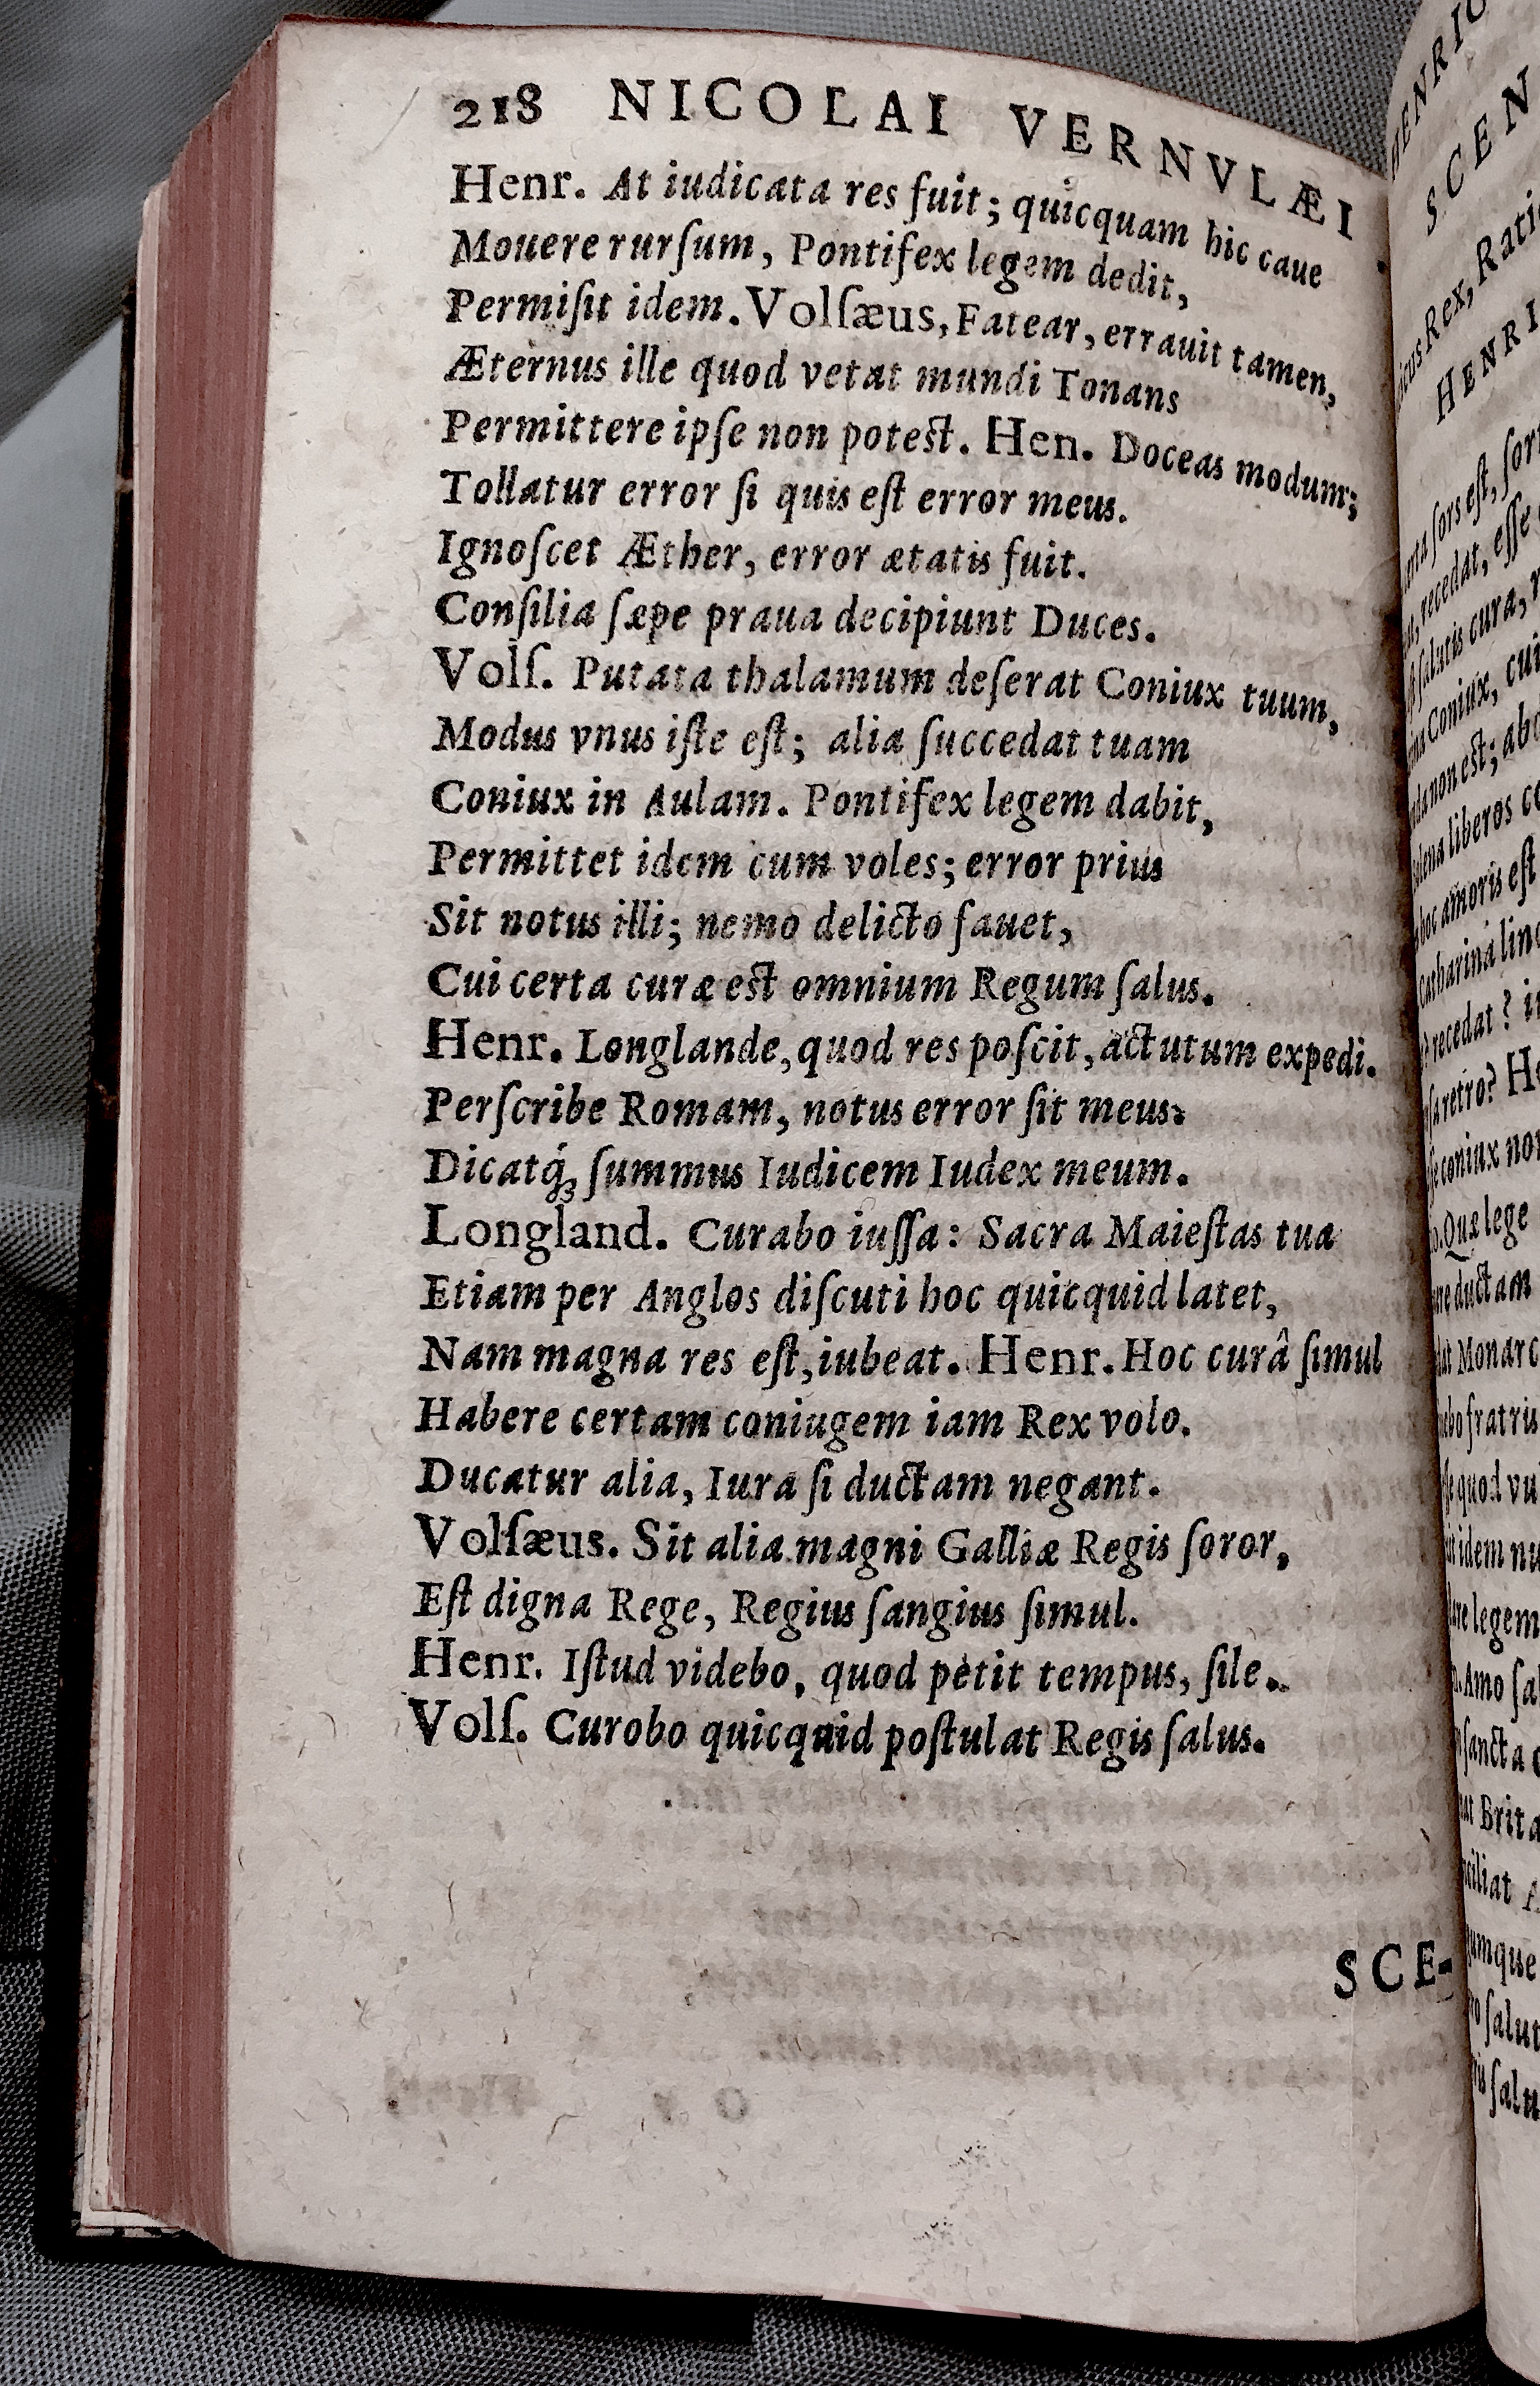 218 NICOLAI VERNVLÆI
Henr. At iudicata res fuit; quicquam hic caue
Mouere rurſum, Pontifex legem dedit,
Permiſit idem. Volſæus, Fatear, errauit tamen,
Æternus ille quod vetat mundi Tonans
Permittere ipſe non poteſt. Hen. Doceas modum;
Tollatur error ſi quis eſt error meus.
Ignoſcet Æther, error ætatis fuit.
Conſilia ſæpe praua decipiunt Duces.
Volſ. Putata thalamum deſerat Coniux tuum,
Modus vnus iſte eſt; alia ſuccedat tuam
Coniux in Aulam. Pontifex legem dabit,
Permittet idem cum voles; error prius
Sit notus illi; nemo delicto fauet,
Cui certa curæ eſt omnium Regum ſalus.
Henr. Longlande, quod res poſcit, actutum expedi.
Perſcribe Romam, notus error ſit meus:
Dicatq́; ſummus Iudicem Iudex meum.
Longland. Curabo iuſſa: Sacra Maieſtas tua
Etiam per Anglos diſcuti hoc quicquid latet,
Nam magna res eſt, iubeat. Henr. Hoc curâ ſimul
Habere certam coniugem iam Rex volo.
Ducatur alia, Iura ſi ductam negant.
Volſæus. Sit alia magni Galliæ Regis ſoror,
Eſt digna Rege, Regius ſangius ſimul.
Henr. Iſtud videbo, quod petit tempus, ſile.
Volſ. Curobo quicquid poſtulat Regis ſalus.
SCE-
HENRIC
SCEN
Rex, Rati
HENRI
ſors eſt, ſor
recedat, eſſe
ſalutis cura,
Coniux, cui
non eſt; ab
liberos
hoc amoris eſt
Catharina
recedat? i
retro? H
coniux no
Quæ lege
ductam
Monarc
fratris
quod vu
idem nu
legem
Amo ſa
ſancta
Brita